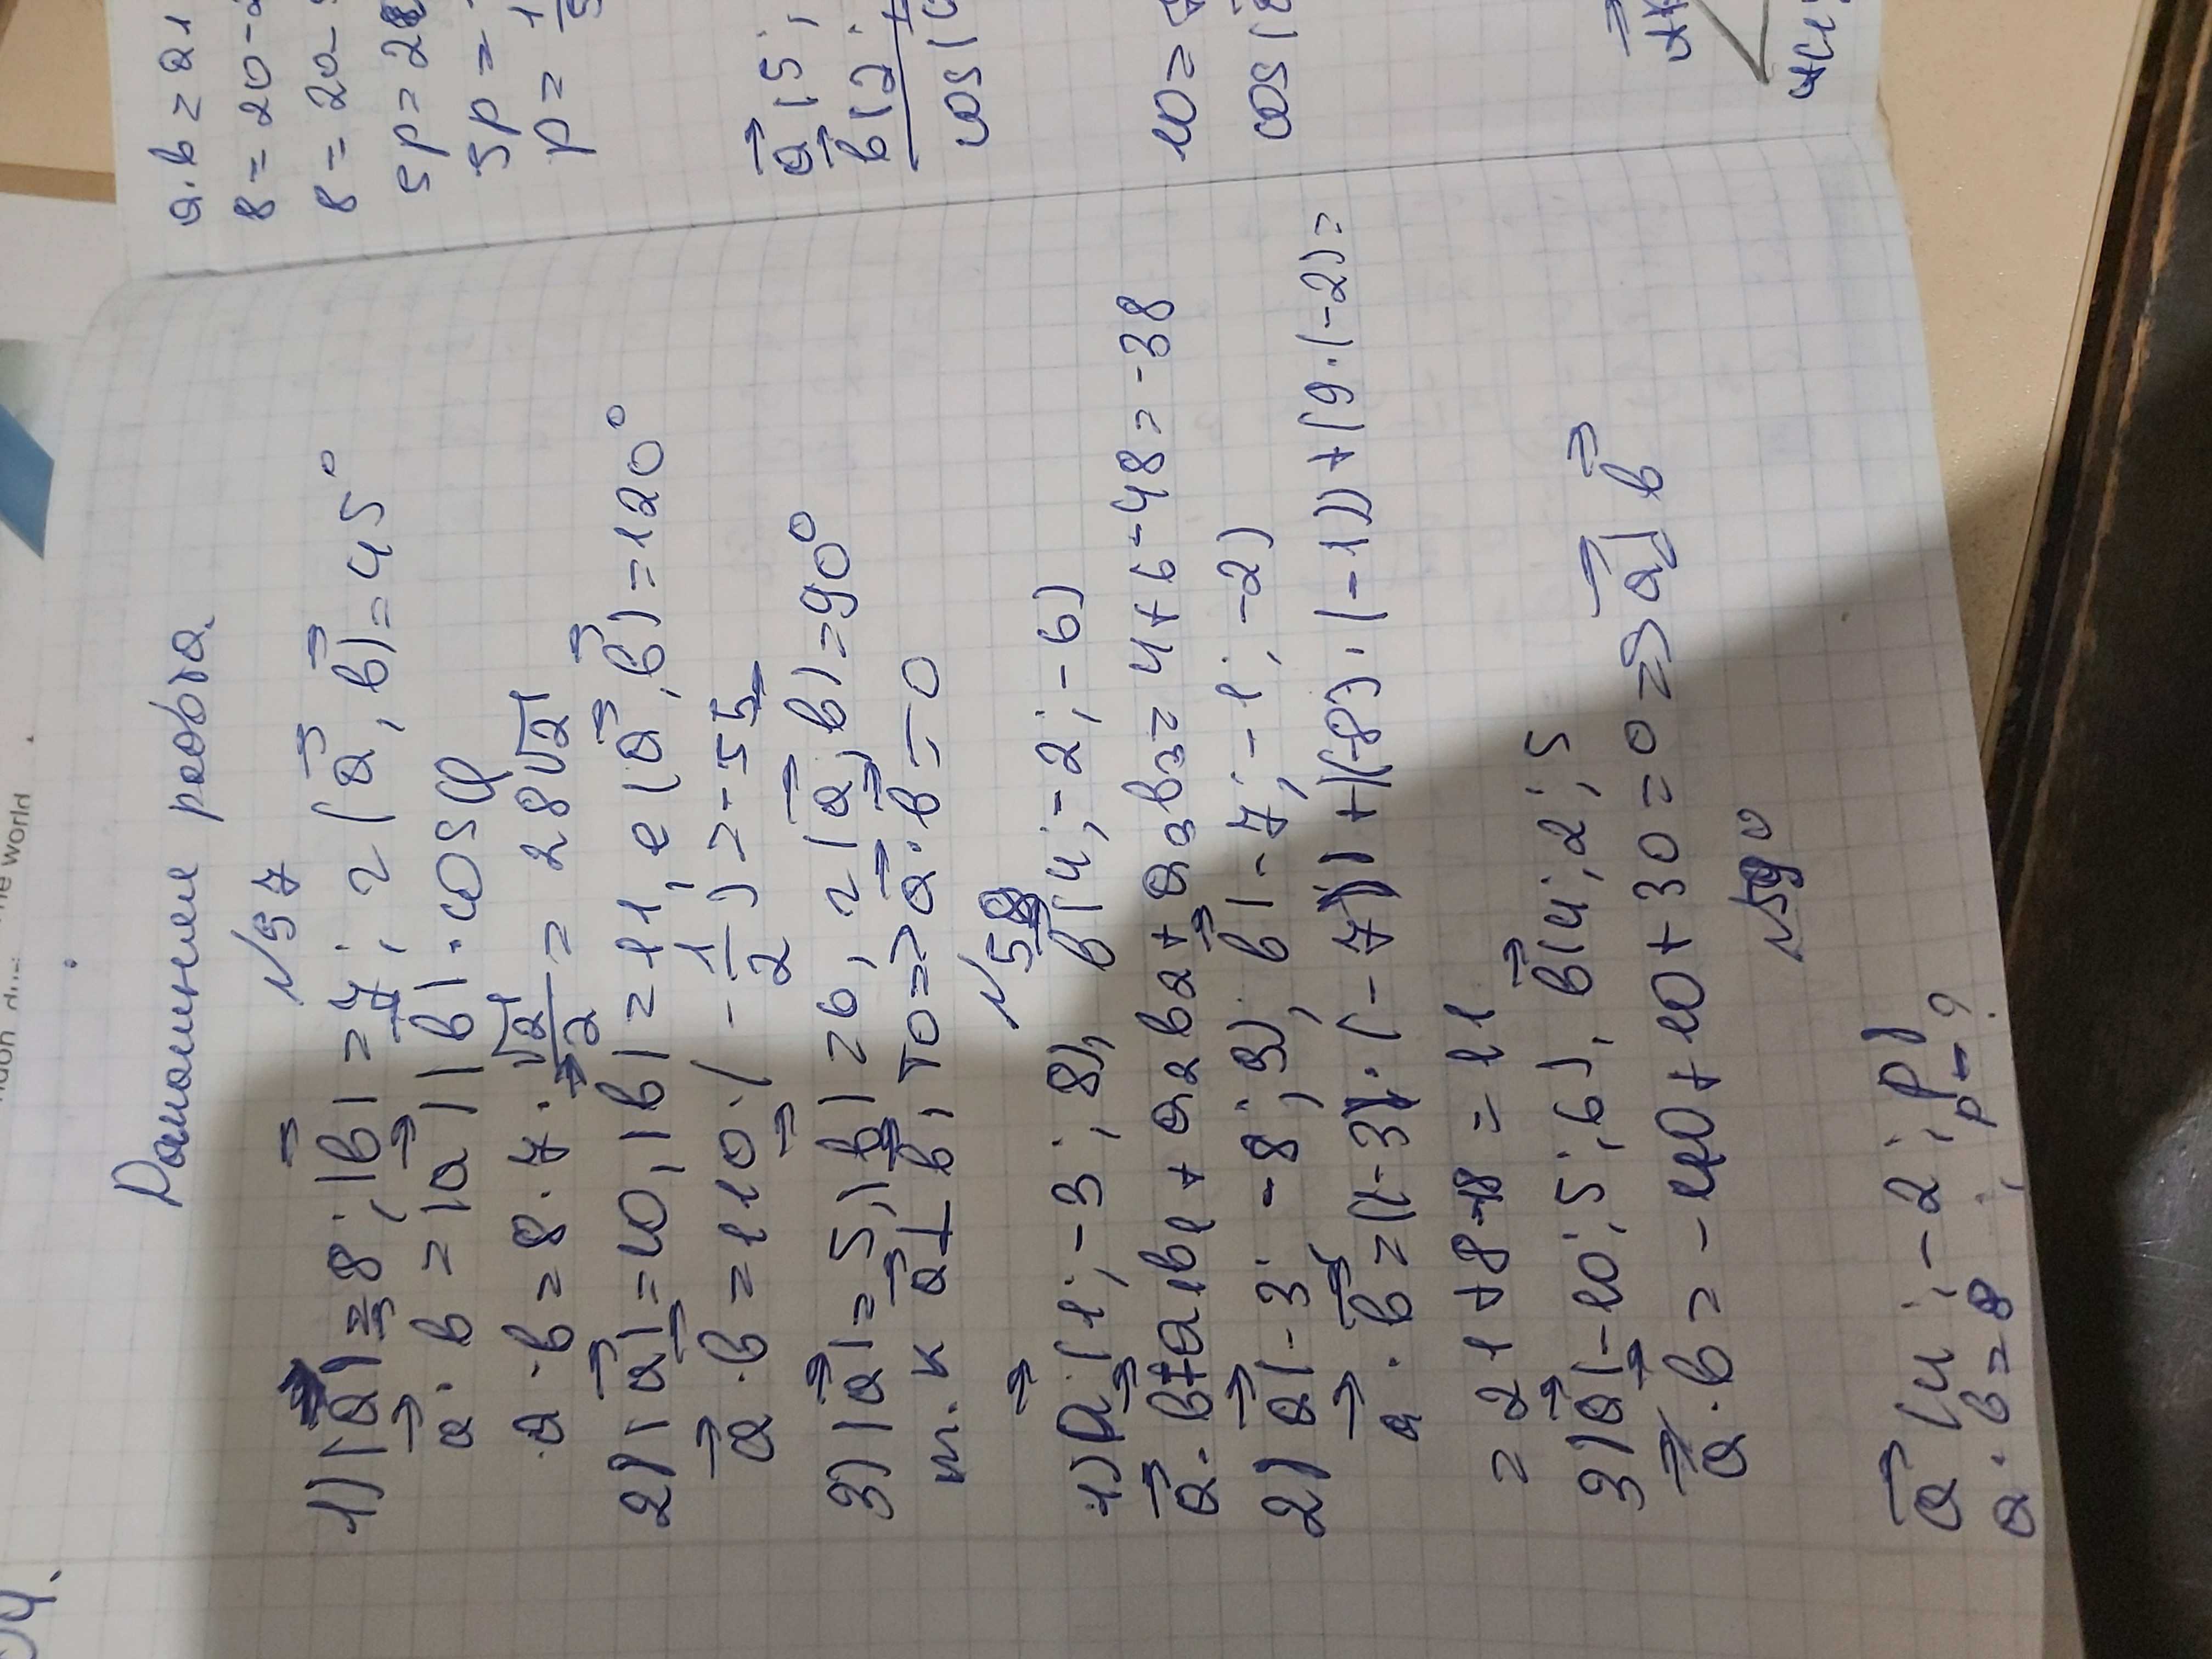 Домашня робота
№57
1) |a⃗| = 8; |b⃗| = 7; ∠(a⃗, b⃗) = 45°
a⃗ · b⃗ = |a⃗| |b⃗| · cos φ
a · b = 8 · 7 · √2/2 = 28√2
2) |a⃗| = 10, |b| = 11, ∠(a⃗, b⃗) = 120°
a⃗ · b⃗ = 110 · (-1/2) = -55
3) |a⃗| = 5, |b⃗| = 6, ∠(a⃗, b) = 90°
т. к a⃗ ⊥ b⃗, то => a⃗ · b⃗ = 0
№58
1) a⃗ (1; -3; 8), b⃗ (4; -2; -6)
a⃗ · b⃗ = a₁b₁ + a₂b₂ + a₃b₃ = 4 + 6 - 48 = -38
2) a⃗ (-3; -8; 9); b⃗ (-7; -1; -2)
a⃗ · b⃗ = ((-3) · (-7)) + ((-8) · (-1)) + (9 · (-2)) =
= 21 + 8 - 18 = 11
3) a⃗ (-10; 5; 6), b⃗ (4; 2; 5
a⃗ · b⃗ = -40 + 10 + 30 = 0 => a⃗ ⊥ b⃗
a⃗ (4; -2; p)
a · b = 8; p - ?
a · b = 21
8 = 20 -
8 = 20 -
5p = 2
5p =
p =
a⃗ (5;
b⃗ (2;
cos (
10 =
cos (